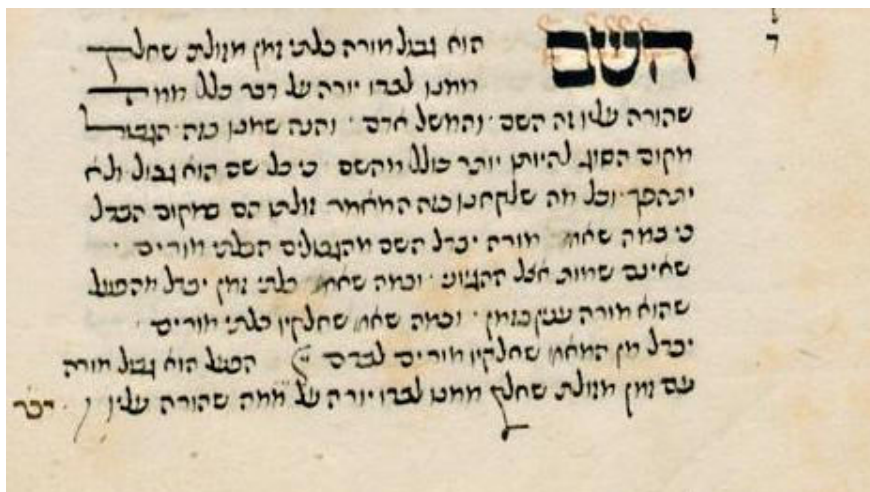 ד
השם הוא גבול מורה בלתי זמן מזולת שחלק
ממנו לבדו יורה על דבר כלל ממה
שהורה עליו זה השם · והמשל אדם · והנה שמנו בזה הגבול
מקום הסוג להיותו יותר כולל מהשם · כי כל שם הוא גבול ולא
יתהפך · וכל מה שלקחנו בזה המאמר זולתו הם במקום הבדל
כי במה שאמ' מורה יבדל השם מהגבולים הבלתי מורים ·
שאינם שמות אצל ההגיון · ובמה שאמ' בלתי זמן יבדל מהפעל
שהוא מורה ענין בזמן · ובמה שאמ' שחלקיו בלתי מורים ·
יבדל מן המאמ' שחלקיו מורים לבדם הפעל הוא גבול מורה
עם זמן מזולת שחלק ממנו לבדו יורה על ממה שהורה עליו · דבר